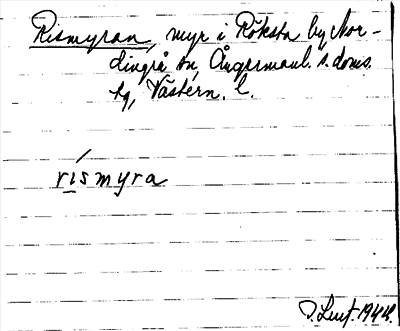 Rismyran, myr i Röksta by Nor-
dingrå sn, Ångermanl. s. doms.
tg, Västern. l.
rismyra
1944.